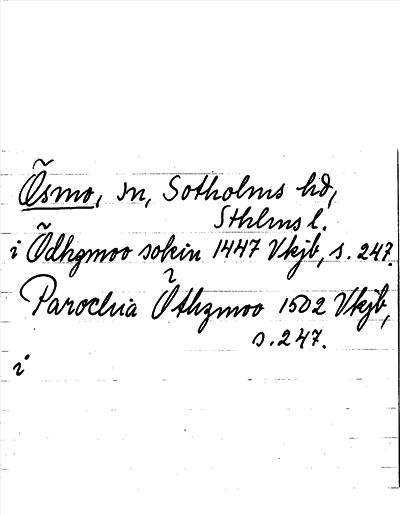 Ösmo, sn, Sotholms hd,
Sthlms l.
i Ödhgmoo sokin 1447 Vkjb, s. 247.
Parochia Öthzmoo 1502 Vkjb,
s. 247.
i